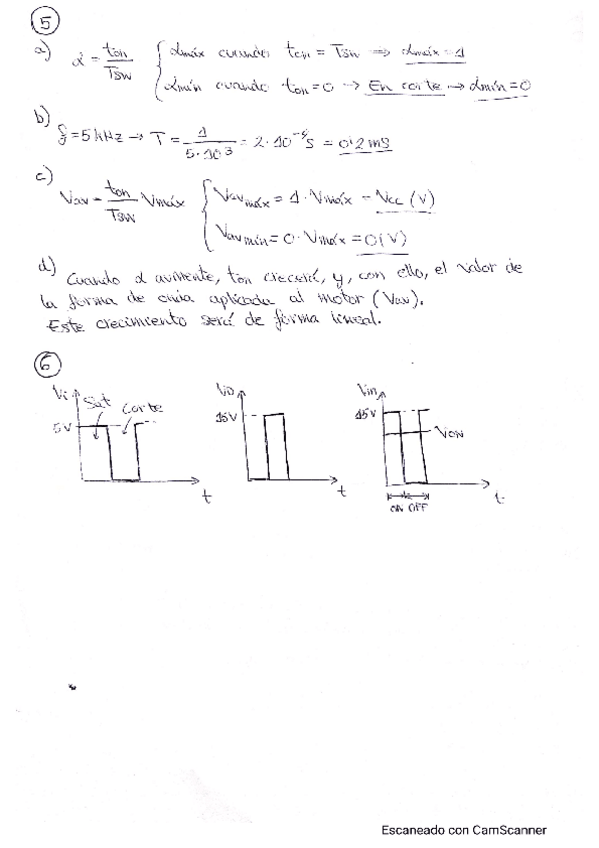 5
a) α = ton / Tsw { αmáx cuando ton = Tsw => αmáx = 1
αmín cuando ton = 0 → En corte → αmín = 0
b)
f = 5 kHz → T = 1 / 5·10³ = 2·10⁻⁴ s = 0'2 ms
c)
Vav = ton / Tsw Vmáx { Vavmáx = 1 · Vmáx = Vcc (V)
Vavmín = 0 · Vmáx = 0 (V)
d) Cuando α aumente, ton crecerá, y, con ello, el valor de
la forma de onda aplicada al motor (Vav).
Este crecimiento será de forma lineal.
6
Vi Sat Corte
5V
t
15V
t
Vin
15V
Von
ON OFF
t
Escaneado con CamScanner